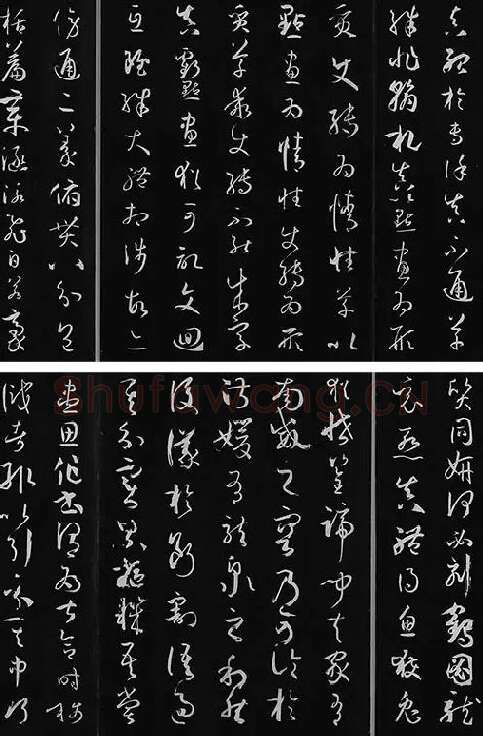 真虧於專謹真不通草
殊非翰札真以點畫為形
質使轉為情性草以
點畫為情性使轉為形
質草乖使轉不能成字
真虧點畫猶可記文迴
互雖殊大體相涉故亦
傍通二篆俯貫八分包
括篇章涵泳飛白若毫
質同妍何必刻鶴圖龍
竟慚真體得魚獲兔
猶恡筌蹄聞夫家有
南威之容乃可論於
淑媛有龍泉之利然
後議於斷割語過
其分實累樞機吾嘗
盡思作書謂為甚合時稱
識者輒以引示其中巧
Shufawang.CN